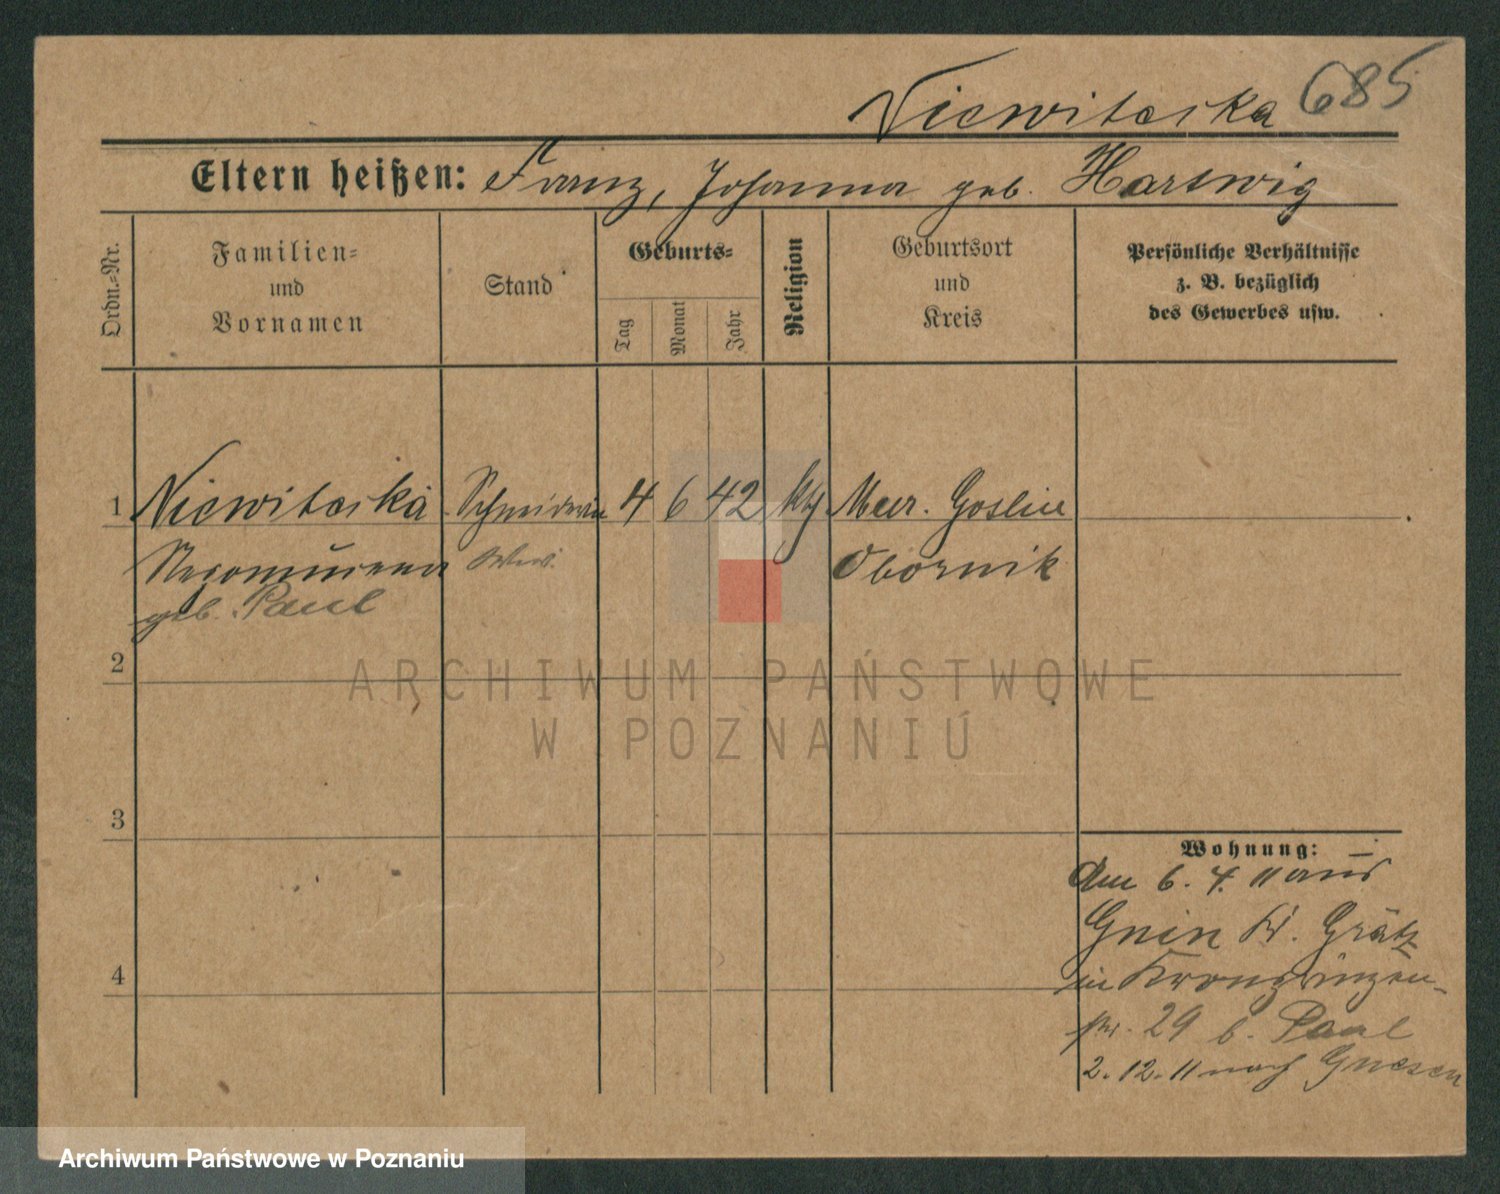 Niewitecka 685
Eltern heißen: Franz, Johanna geb. Hartwig
Ordn.-Nr.
Familien-
und
Vornamen
Stand
Geburts-
Tag
Monat
Jahr
Religion
Geburtsort
und
Kreis
Persönliche Verhältnisse
z. B. bezüglich
des Gewerbes usw.
1 Niewitecka Schneiderin 4 6 42 kth Mur. Goslin
Nepomucena Wwe. Obornik
geb. Paul
2
3
4
Wohnung:
Am 6. 4. 11 aus
Gnin Kr. Grätz
in Kronprinzen-
str. 29 b. Paul
2. 12. 11 nach Gnesen
ARCHIWUM PAŃSTWOWE
W POZNANIU
Archiwum Państwowe w Poznaniu